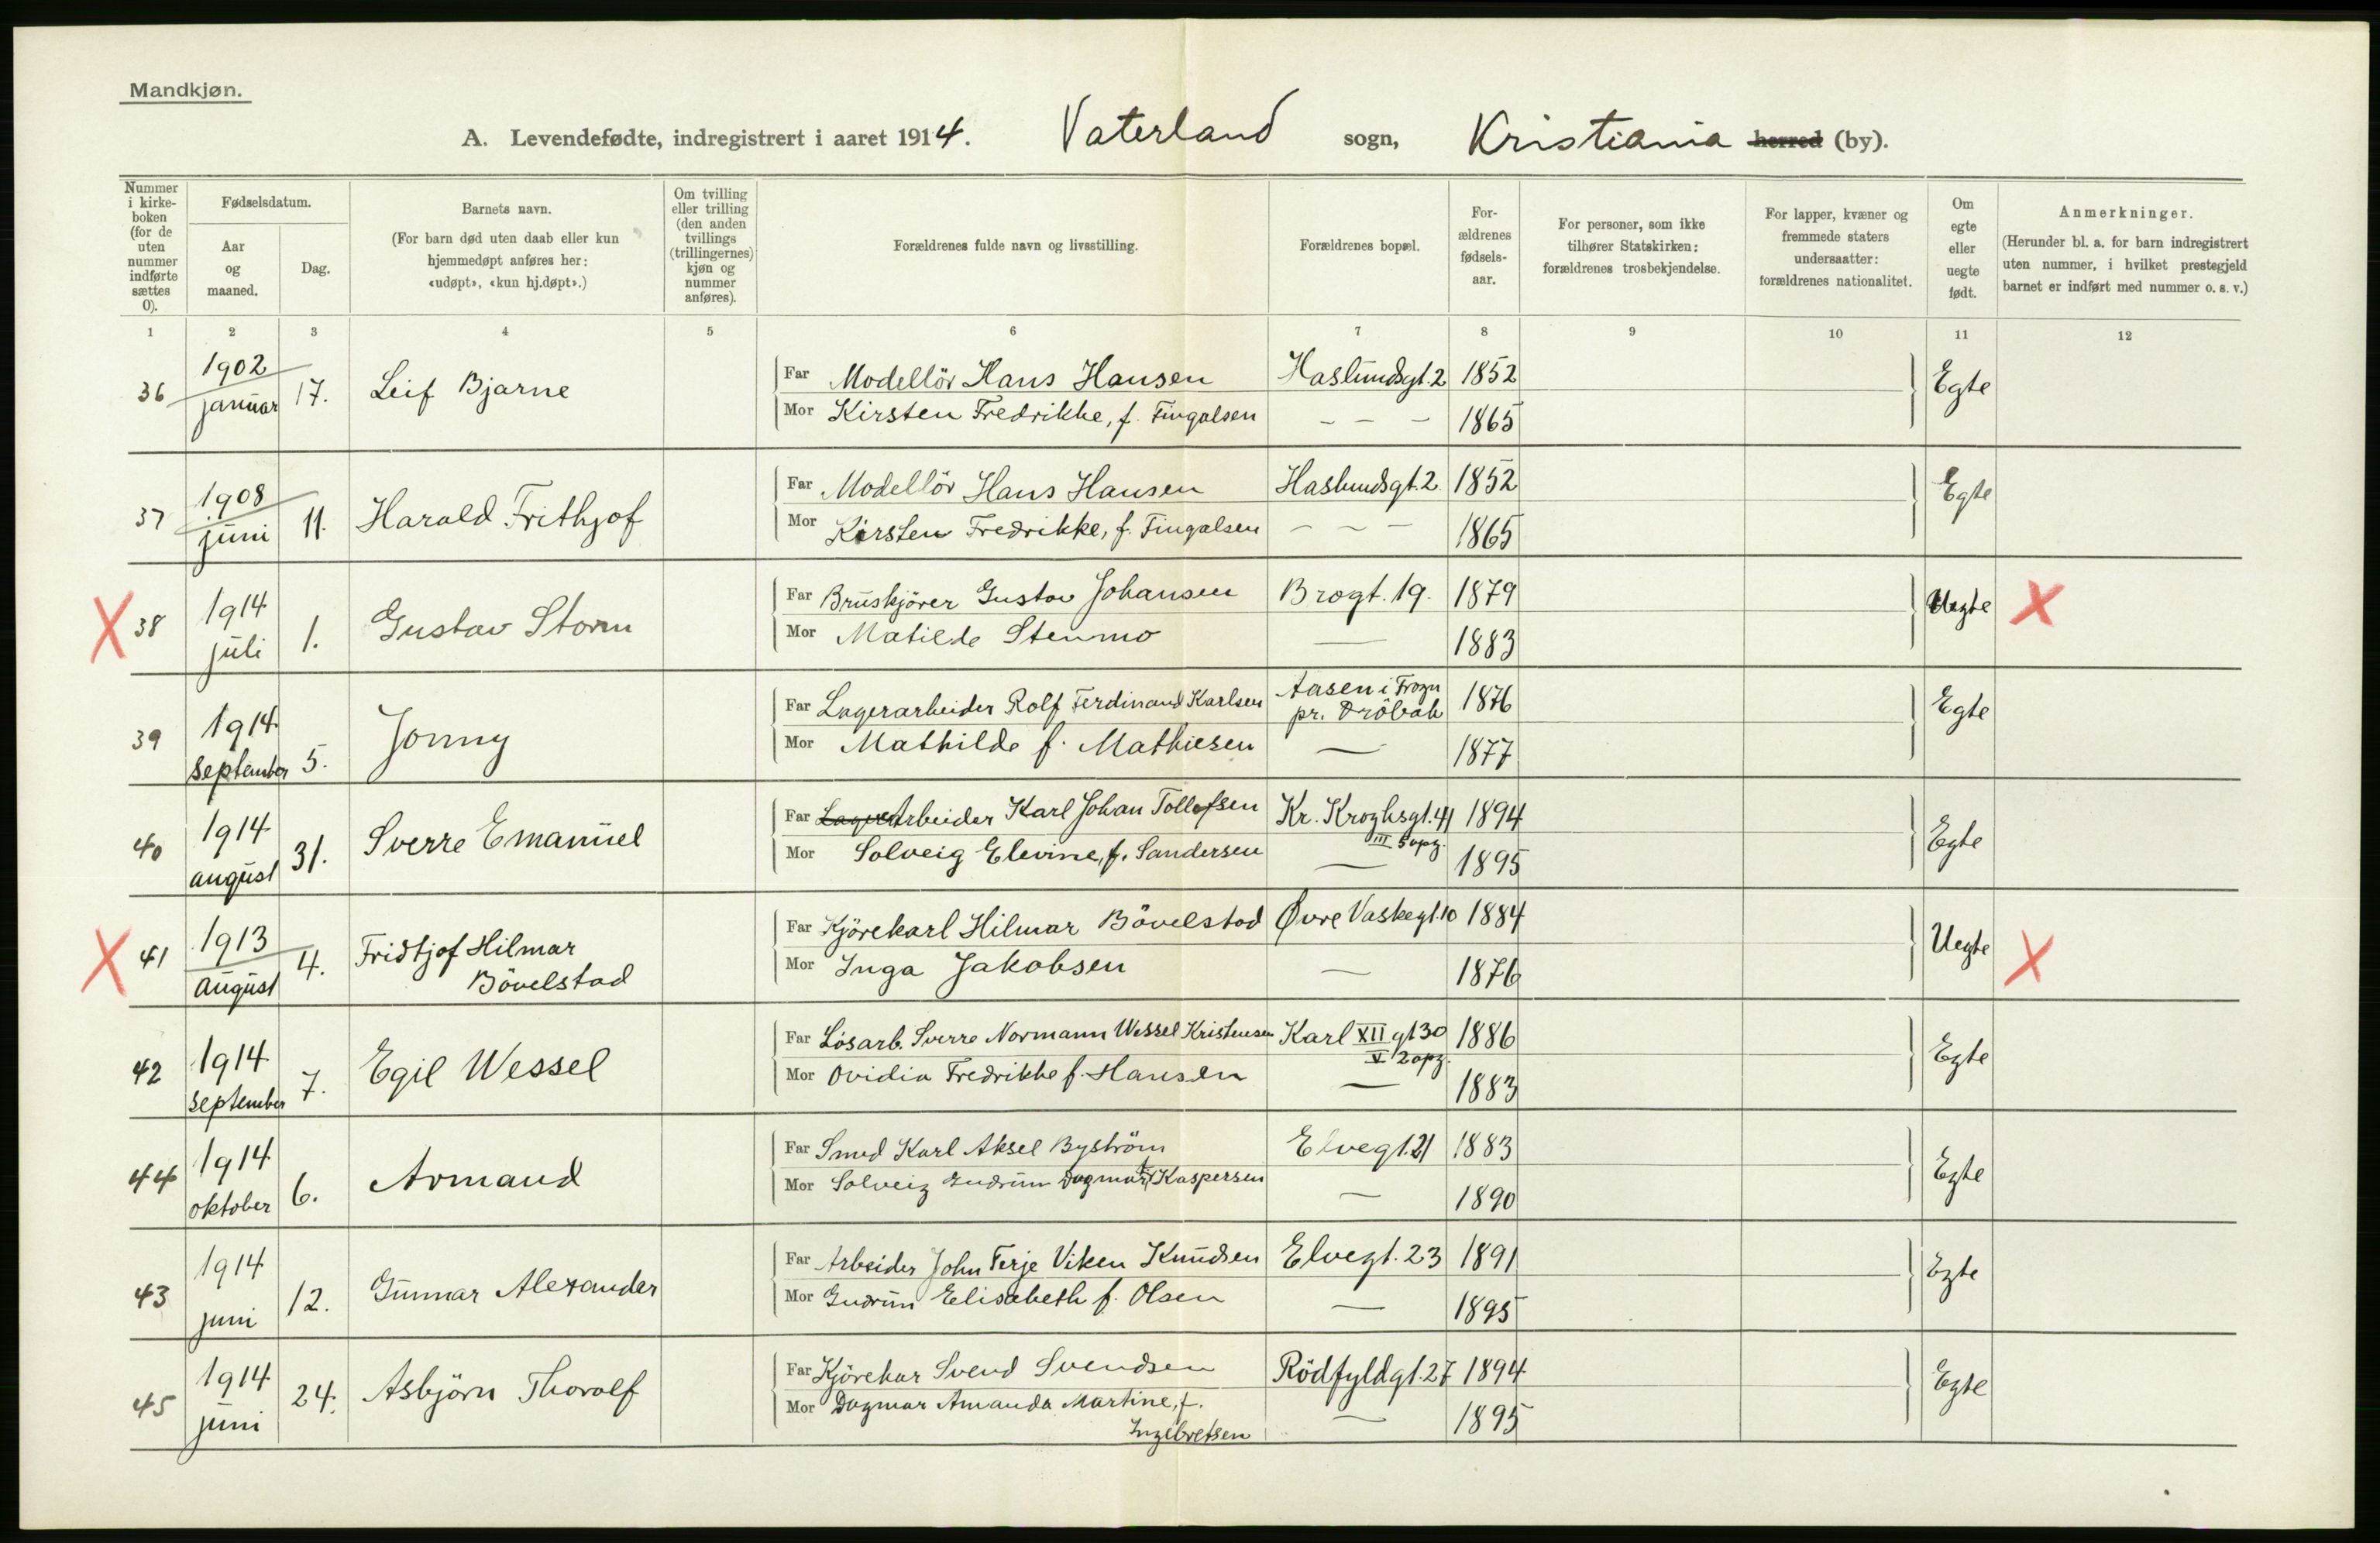 Mandkjøn.
A. Levendefødte, indregistrert i aaret 1914. Vaterland sogn, Kristiania herred (by).
Nummer i kirke- boken (for de uten nummer indførte sættes 0).
Fødselsdatum.
Aar og maaned.
Dag.
Barnets navn.
(For barn død uten daab eller kun hjemmedøpt anføres her: «udøpt», «kun hj.døpt».)
Om tvilling eller trilling (den anden tvillings (trillingernes) kjøn og nummer anføres).
Forældrenes fulde navn og livsstilling.
Forældrenes bopæl.
For- ældrenes fødsels- aar.
For personer, som ikke tilhører Statskirken: forældrenes trosbekjendelse.
For lapper, kvæner og fremmede staters undersaatter: forældrenes nationalitet.
Om egte eller uegte født.
Anmerkninger.
(Herunder bl. a. for barn indregistrert uten nummer, i hvilket prestegjeld barnet er indført med nummer o. s. v.)
1 2 3 4 5 6 7 8 9 10 11 12
36 1902 januar 17. Leif Bjarne Far Modellör Hans Hansen Haslundsgt. 2 1852 Egte
Mor Kirsten Fredrikke, f. Fingalsen – – – 1865
37 1908 juni 11. Harald Frithjof Far Modellör Hans Hansen Haslundsgt. 2. 1852 Egte
Mor Kirsten Fredrikke, f. Fingalsen – – – 1865
X 38 1914 juli 1. Gustav Storm Far Bruskjörer Gustav Johansen Brogt. 19. 1879 Uegte X
Mor Matilde Stenmo — 1883
39 1914 september 5. Jonny Far Lagerarbeider Rolf Ferdinand Karlsen Aasen i Frogn pr. Dröbak 1876 Egte
Mor Mathilde f. Mathiesen — 1877
40 1914 august 31. Sverre Emanuel Far Lager Arbeider Karl Johan Tollefsen Kr. Kroghsgt. 41 III 5 opg. 1894 Egte
Mor Solveig Elevine, f. Sandersen — 1895
X 41 1913 august 4. Fridtjof Hilmar Bövelstad Far Kjörekarl Hilmar Bövelstad Øvre Vaskegt. 10 1884 Uegte X
Mor Inga Jakobsen — 1876
42 1914 september 7. Egil Wessel Far Lösarb. Sverre Normann Wessel Kristensen Karl XII gt 30 V 2 opg. 1886 Egte
Mor Ovidia Fredrikke f. Hansen — 1883
44 1914 oktober 6. Armand Far Smed Karl Aksel Byström Elvegt. 21 1883 Egte
Mor Solveig Gudrun Dagmar f. Kaspersen — 1890
43 1914 juni 12. Gunnar Alexander Far Arbeider John Terje Viken Knudsen Elvegt. 23 1891 Egte
Mor Gudrun Elisabeth f. Olsen — 1895
45 1914 juni 24. Asbjörn Thorolf Far Kjörekar Svend Svendsen Rödfyldgt. 27 1894 Egte
Mor Dagmar Amanda Martine, f. Ingebretsen — 1895